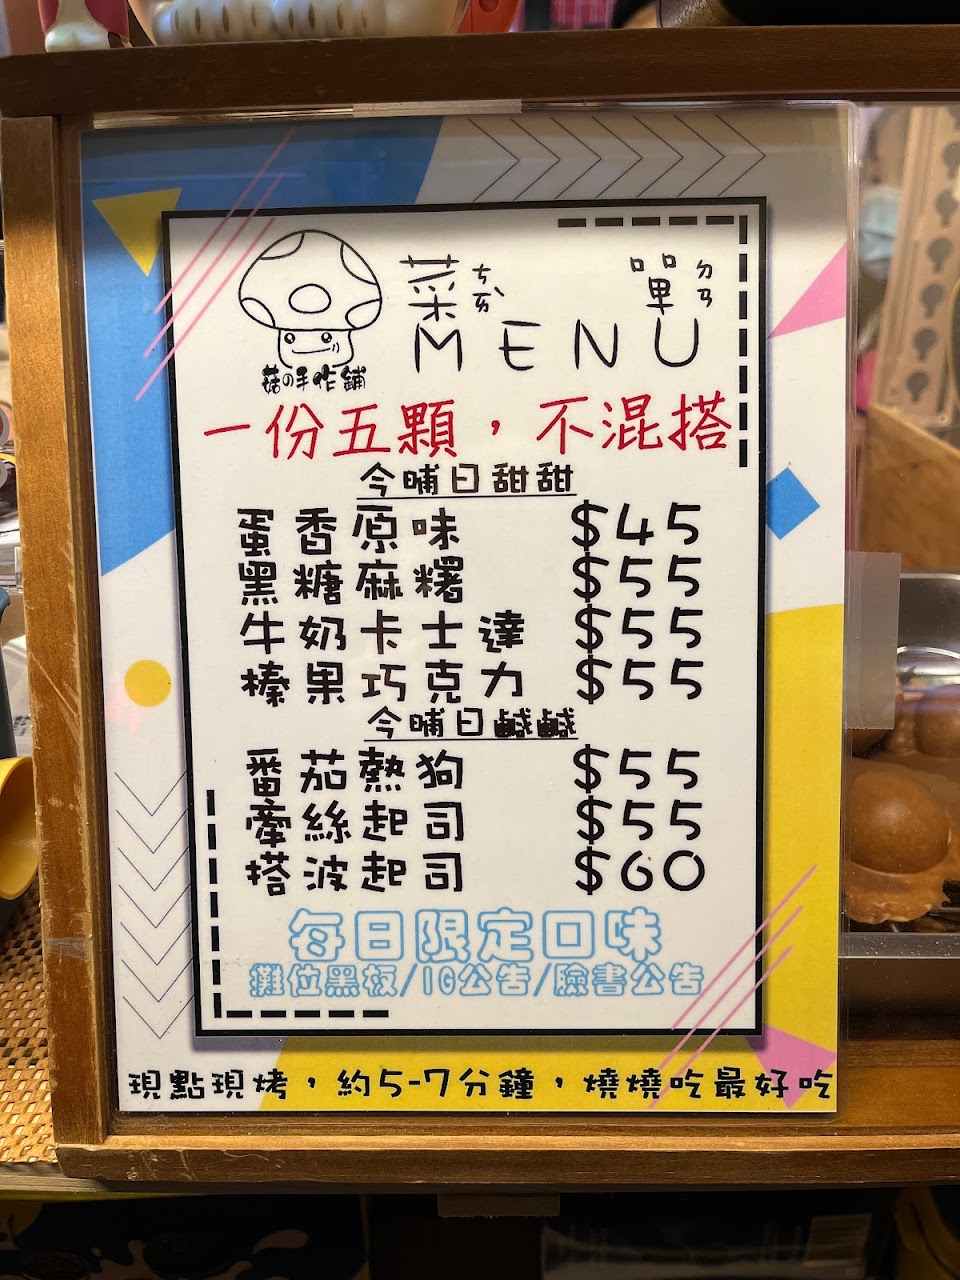 菜ㄘㄞˋ 單ㄉㄢ
MENU
菇の手作舖
一份五顆，不混搭
今晡日甜甜
蛋香原味 $45
黑糖麻糬 $55
牛奶卡士達 $55
榛果巧克力 $55
今晡日鹹鹹
番茄熱狗 $55
牽絲起司 $55
搭波起司 $60
每日限定口味
攤位黑板/IG公告/臉書公告
現點現烤，約5-7分鐘，燒燒吃最好吃